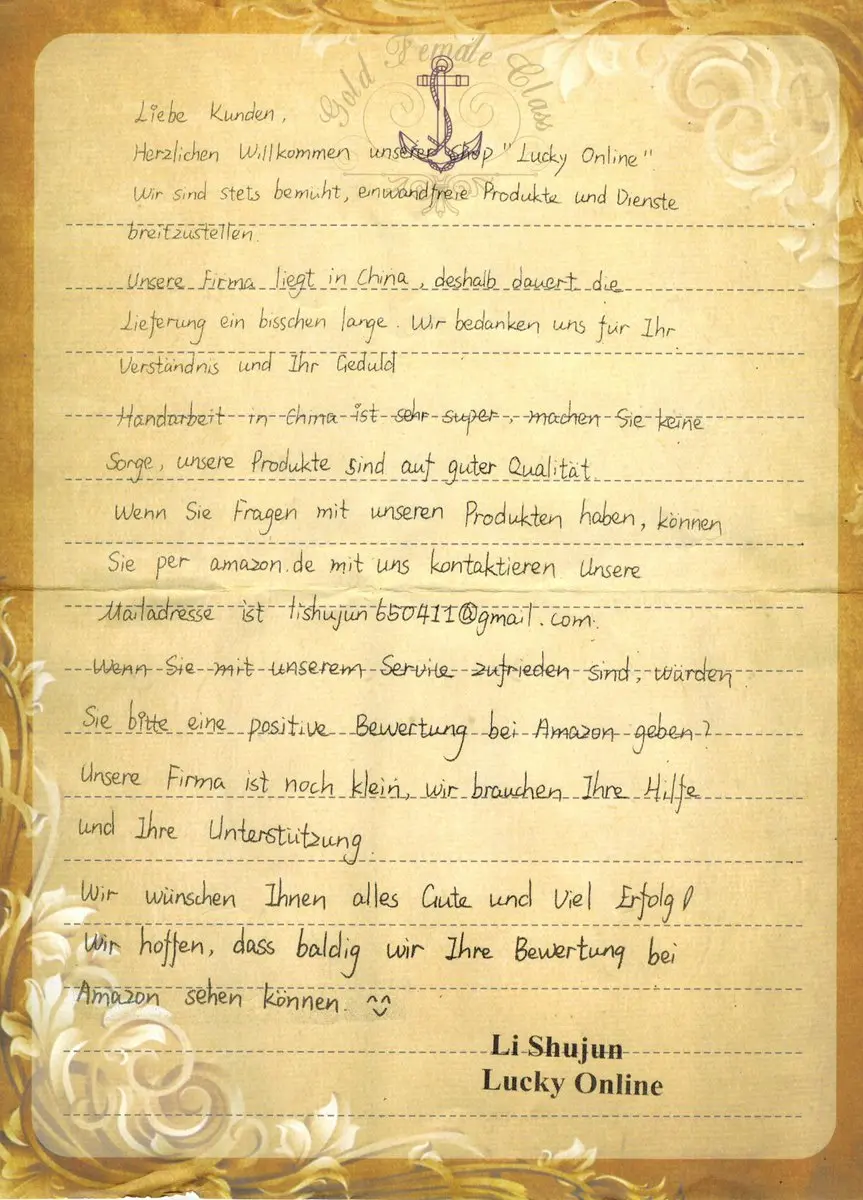 Gold Female Class
Liebe Kunden,
Herzlichen Willkommen unserer Shop "Lucky Online"
Wir sind stets bemüht, einwandfreie Produkte und Dienste
breitzustellen.
Unsere Firma liegt in China, deshalb dauert die
Lieferung ein bisschen lange. Wir bedanken uns für Ihr
Verständnis und Ihr Geduld
Handarbeit in China ist sehr super, machen Sie keine
Sorge, unsere Produkte sind auf guter Qualität.
Wenn Sie Fragen mit unseren Produkten haben, können
Sie per amazon.de mit uns kontaktieren. Unsere
Mailadresse ist lishujun650411@gmail.com.
Wenn Sie mit unserem Servile zufrieden sind, würden
Sie bitte eine positive Bewertung bei Amazon geben?
Unsere Firma ist noch klein, wir brauchen Ihre Hilfe
und Ihre Unterstützung.
Wir wünschen Ihnen alles Gute und Viel Erfolg!
Wir hoffen, dass baldig wir Ihre Bewertung bei
Amazon sehen können. ^^
Li Shujun
Lucky Online